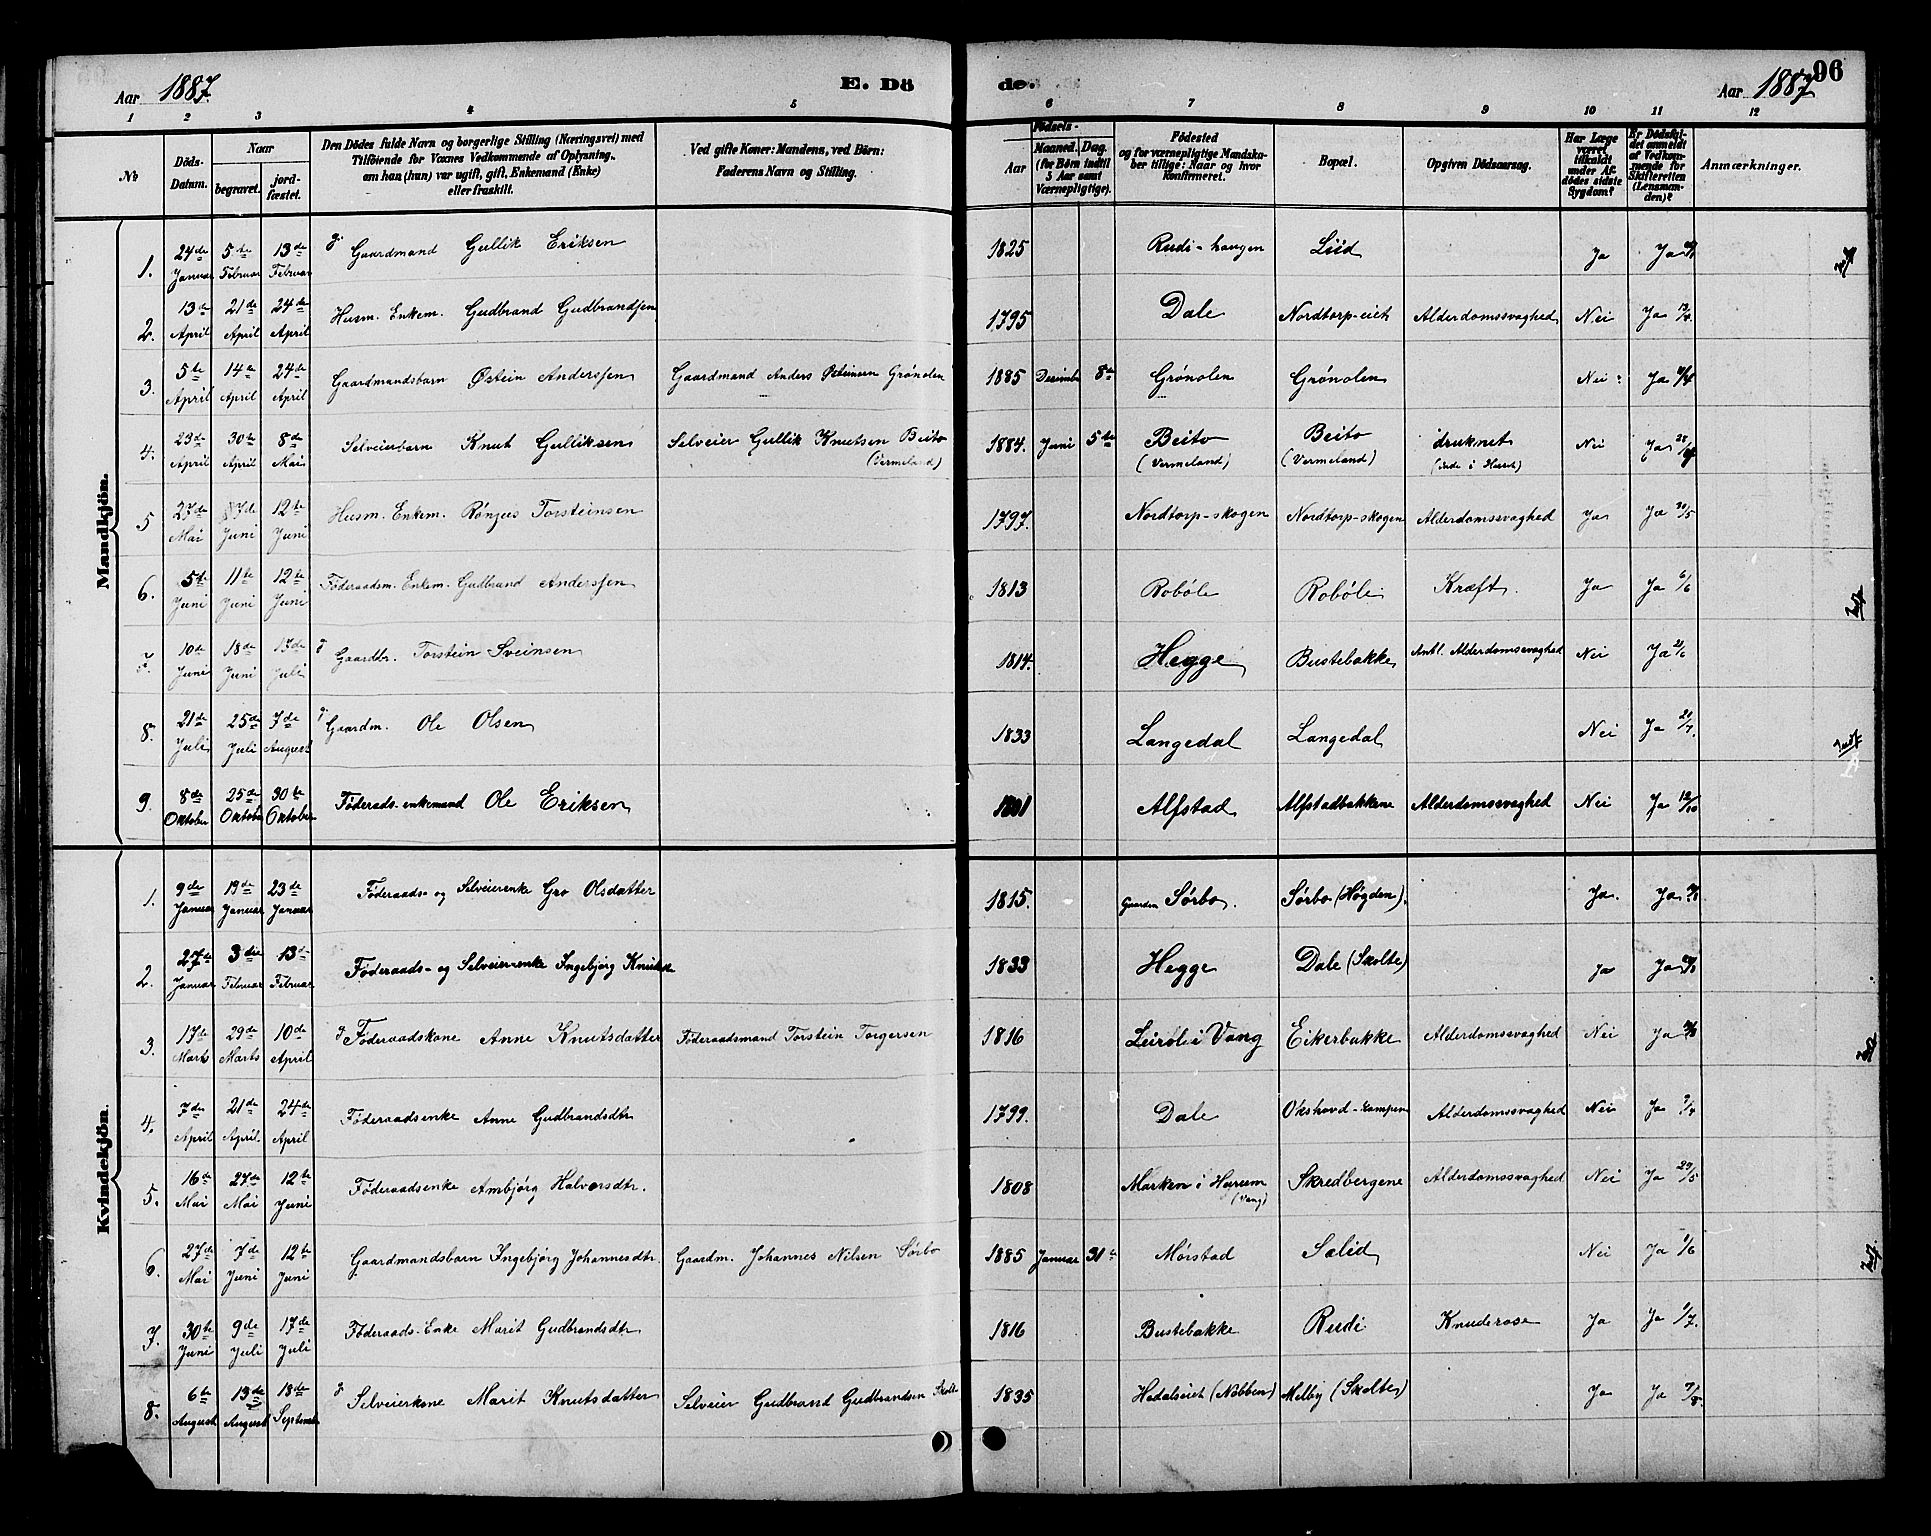 Aar 1887.
E. Dö
de.
Aar 1887
96
1 2 3 4 5 6 7 8 9 10 11 12
No
Döds-Datum.
Naar
begravet.
jord-fæstet.
Den Dödes fulde Navn og borgerlige Stilling (Næringsvei) med Tilföiende for Voxnes Vedkommende af Oplysning, om han (hun) var ugift, gift, Enkemand (Enke) eller fraskilt.
Ved gifte Koner: Mandens, ved Börn: Faderens Navn og Stilling.
Födsels-
Aar
Maaned. Dag.
(for Börn indtil 5 Aar samt Værnepligtige).
Födested og for værnepligtige Mandskaber tillige: Naar og hvor konfirmeret.
Bopæl.
Opgiven Dödsaarsag.
Har Læge været tilkaldt under Afdödes sidste Sygdom?
Er Dödsfaldet anmeldt af Vedkommende for Skifteretten (Lensmanden)?
Anmærkninger.
Mandkjön.
1. 24de Januar 5te Februar 13de Februar g Gaardmand Gullik Eriksen 1825 Rudi-haugen Liid Ja Ja
2. 13de April 21de April 24de April Husm. Enkem. Gudbrand Gudbrandsen 1795 Dale Nordtorp-eiet Alderdomssvaghed Nei Ja 13/4.
3. 5te April 14de April 24de April Gaardmandsbarn Østein Anderssen Gaardmand Anders Østeinsen Grönolen 1885 Desember 8de Grönolen Grönolen Nei Ja
4. 23de April 30te April 8de Mai Selveierbarn Knut Gulliksen Selveier Gullik Knutsen Beito (Vermeland) 1884. Juni 5te Beito (Vermeland) Beito (Vermeland) druknet Nei Ja 28/4
5 27de Mai 7de Juni 12te Juni Husm. Enkem. Rönjus Torsteinsen 1797. Nordtorp-skogen Nordtorp-skogen Alderdomssvaghed Ja Ja
6. 5te Juni 11te Juni 12te Juni Föderaadsm. Enkem. Gudbrand Anderssen 1813 Roböle Roböle Kræft. Ja Ja 6/6
7. 10de Juni 18de Juni 17de Juli g Gaardbr. Torstein Sveinsen 1814. Hegge Bustebakke Antl. Alderdomssvaghed Nei Ja 21/6
8. 21de Juli 25de Juli 7de August g Gaardm. Ole Olsen 1833 Langedal Langedal Nei Ja 21/7.
9. 8de Oktober 25de Oktober 30te Oktober Föderads-enkemand Ole Eriksen 1801 Alfstad Alfstadbakkene Alderdomssvaghed Nei Ja 12/10
Kvindekjön.
1. 9de Januar 19de Januar 23de Januar Föderaads- og Selveierenke Gro Olsdatter 1815. Gaarden Sörbo. Sörbo (Högden). Ja. Ja
2. 27de Januar 3die Februar 13de Februar Föderaads- og Selveierenke Ingebjörg Knutsd. 1833 Hegge Dale (Skolte) Ja Ja
3. 17de Marts 29de Marts 10de April g Föderaadskone Anne Knutsdatter Föderaadsmand Torstein Torgersen 1816 Leiroli i Vang Eikerbakke Alderdomssvaghed Nei Ja
4. 7de April 21de April 24de April Föderaadsenke Anne Gudbrandsdtr 1799. Dale Okshovd-kampen Alderdomssvaghed Nei Ja 9/4
5. 16de Mai 27de Mai 12te Juni Föderaadsenke Ambjörg Halvorsdtr. 1808 Marken i Hurum (Vang) Skredbergene Alderdomssvaghed Nei Ja 29/5
6. 27de Mai 7de Juni 12te Juni Gaardmandsbarn Ingebjörg Johannesdtr. Gaardm. Johannes Nilsen Sörbo 1885 Januar 31te Mörstad Sælid Nei Ja 1/6
7. 30te Juni 9de Juli 17de Juli Föderaads-Enke Marit Gudbrandsdtr 1816 Bustebakke Rudi Knuderose Ja Ja 1/7.
8. 6te August 13de August 18de September g Selveierkone Marit Knutsdatter Selveier Gudbrand Gudbrandsen Skolte 1835 Hedalseiet (Nobben) Melby (Skolte) Ja Ja 7/8.